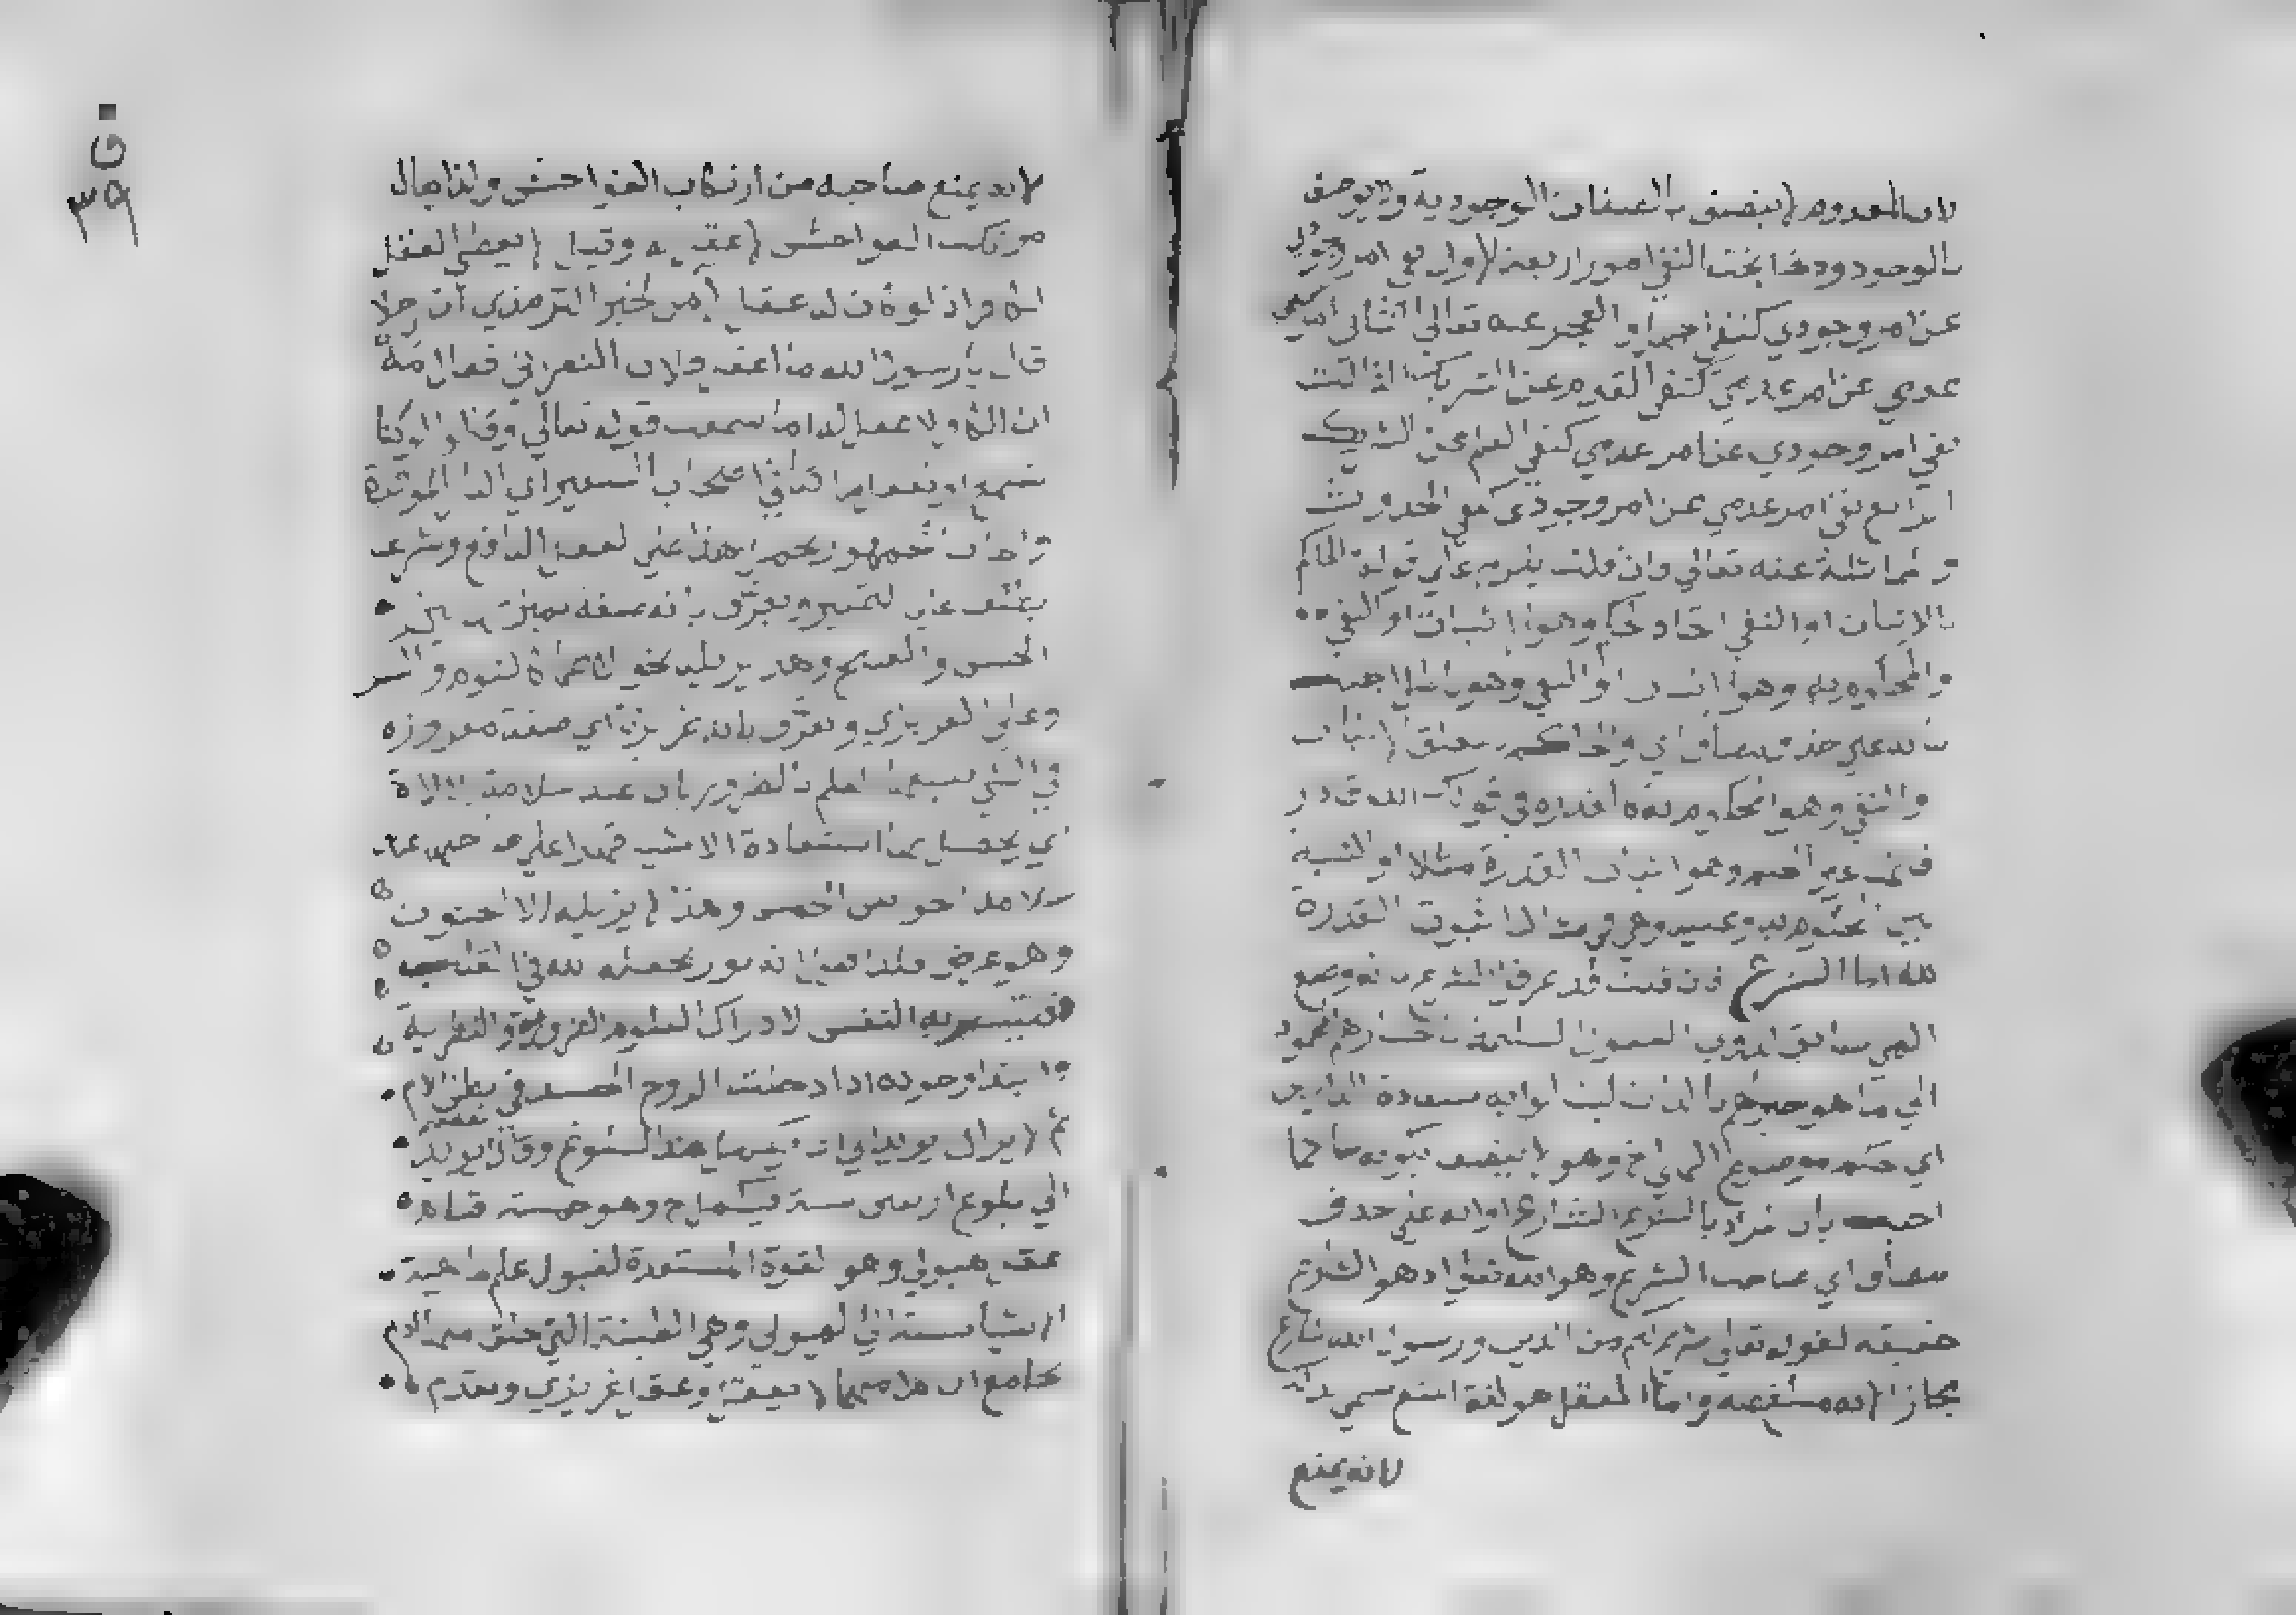 لان المعدوم لا يتصف بالصفات الوجودية ولا يوصف
بالوجود ودخل تحت النفي امور اربعة الاول نفي امر وجودي
عن امر وجودي كنفي العجز عنه تعالى الثاني نفي امر
عدمي عن امر عدمي كنفي القدم عن الشريك الثالث
نفي امر وجودي عن امر عدمي كنفي العلم عن الشريك
الرابع نفي امر عدمي عن امر وجودي كنفي الحدوث
والمماثلة عنه تعالى وان قلت يلزم على قوله الحاكم
بالاثبات او النفي اتحاد الحكم وهو اثبات او النفي
والمحكوم به وهو او النفي وهو باطل اجيب
بانه على حذف مضاف اي والحاكم بمتعلق الاثبات
والنفي وهو المحكوم به في قولك الله قادر
وهو اثبات القدرة مثلا او النسبة
بين المحكوم به وعليه وهي في مثالنا ثبوت القدرة
لله اما الشرع فان قلت قد عرف الشرع بانه وضع
الهي سائق لذوي العقول السليمة باختيارهم المحمود
الى ما هو خير لهم بالذات لينالوا به سعادة الدارين
اي حكم موضوع الهي الخ وهو لا يتصف بكونه حاكما
اجيب بان المراد بالشرع الشارع او انه على حذف
مضاف اي صاحب الشرع وهو الله تعالى اذ هو الشارع
حقيقة لقوله تعالى شرع لكم من الدين ورسول الله شارع
مجازا لانه مبلغ عنه واما العقل هو لغة المنع سمي بذلك
لانه يمنع
ق
٣٩
لانه يمنع صاحبه من ارتكاب الفواحش ولذا يقال
مرتكب الفواحش لا عقل له وقيل لا يعطى العقل
الكافر اذ لو كان له عقل لآمن لخبر الترمذي ان رجلا
قال يا رسول الله ما اعقل فلان النصراني فقال مه
ان الكافر لا عقل له اما سمعت قوله تعالى وقالوا لو كنا
نسمع او نعقل ما كنا في اصحاب السعير اي النار الموقدة
واجاب الجمهور بحمل هذا على العقل النافع وشرعا
يطلق على التمييز ويعرف بانه صفة يميز بها بين
الحسن والقبيح وهذا يزيله نحو الاغماء والنوم والسكر
وعلى الغريزي ويعرف بانه غريزة اي صفة مغروزة
في الشخص يتبعها العلم بالضروريات عند سلامة الالات
اي يحصل بها استفادة الاشياء
سلامة الحواس الخمس وهذا لا يزيله الا الجنون
وهو عرض فلذا قيل انه نور يجعله الله في القلب
فتستعد به النفس لادراك العلوم الضرورية والنظرية
وابتداء وجوده اذا دخلت الروح الجسد في بطن الام
ثم لا يزال يزيد الى ان يكمل عند البلوغ وقال يزيد
الى بلوغ اربعين سنة فيكمل ح وهو خمسة اقسام
عقل هيولي وهو القوة المستعدة لقبول علم ماهية
الاشياء نسبة الى الهيولي وهي الطينة التي خلق منها ادم
بجامع ان كلا منهما وعقل غريزي وتقدم